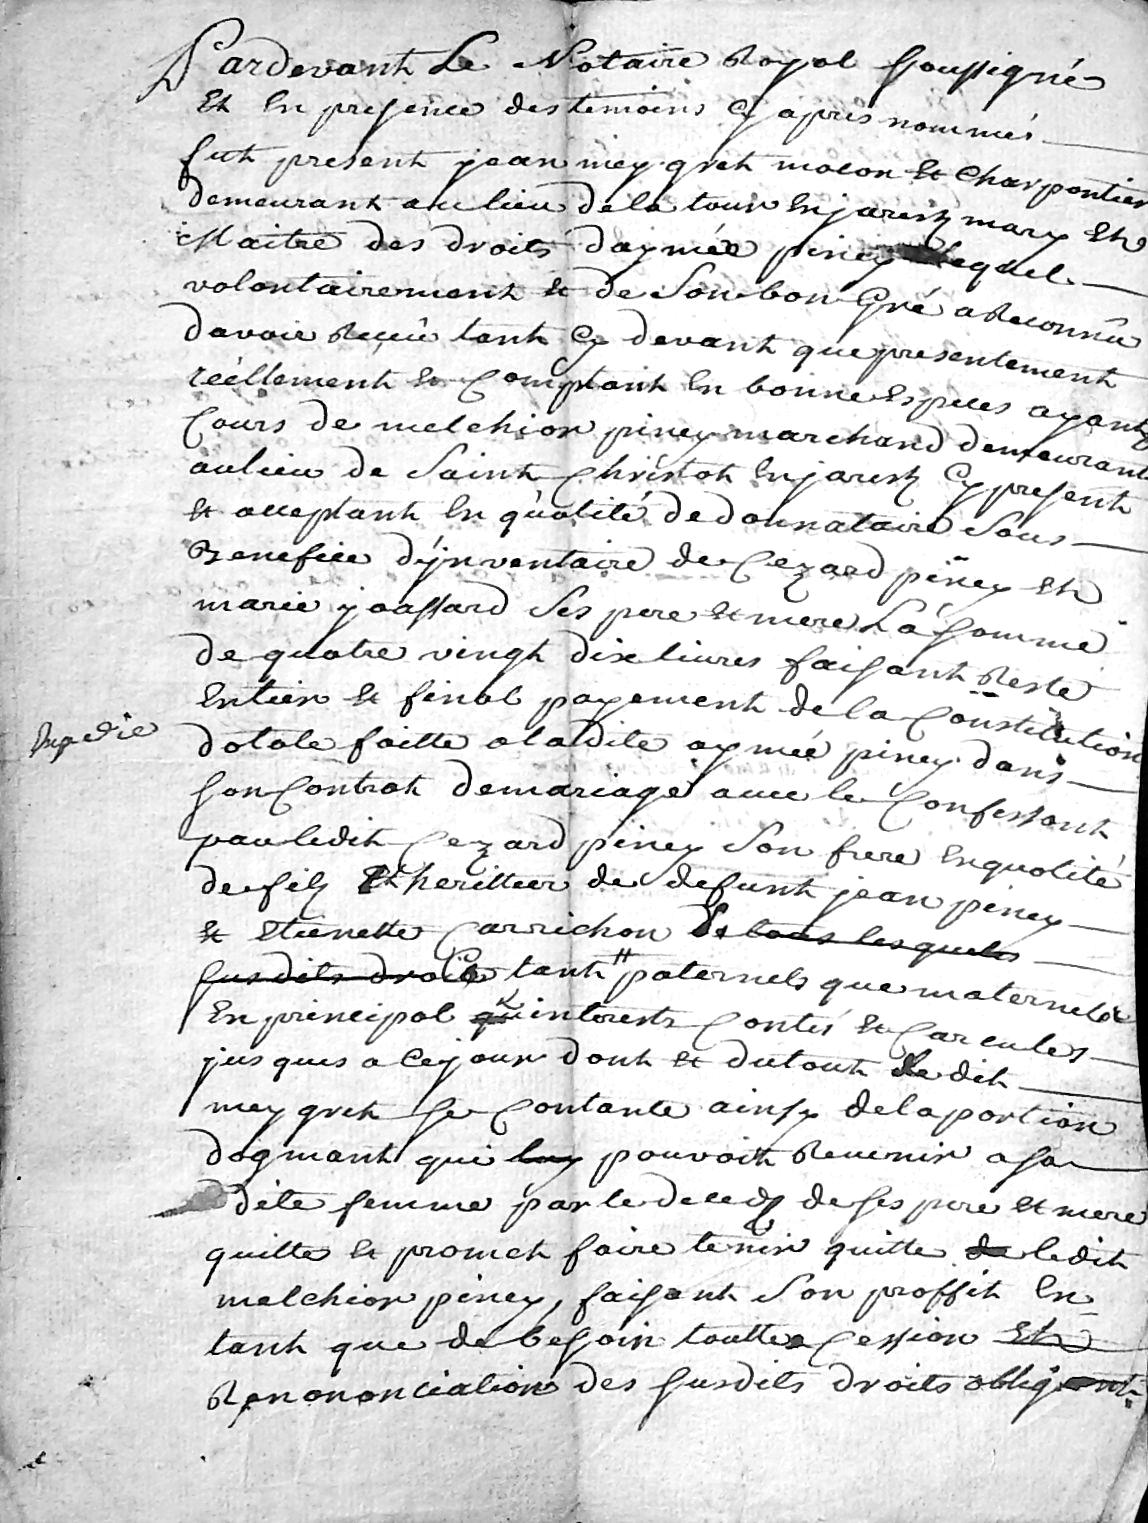 Pardevant Le Notaire Royal soussigné
Et En presence des temoins cy apres nommés
fut present jean meygret macon Et charpentier
demeurant au lieu de la tour Enjarest mary Et
Maitre des droits daymée piney lequel
volontairement & de Son bon Gré a Reconnû
davoir Reçeû tant cy devant que presentement
réellement & comptant En bonne Especes ayant
Cours de melchior piney marchand demeurant
au lieu de Saint christot Enjarest cy present
& acceptant En qualité de donnataire Sous
Benefice d'ynventaire de Cezard piney Et
marie joassard Ses pere & mere La Somme
de quatre vingt dix livres faisant Reste
Entier & final payement de la Constitution
dotale faitte a la dite aymée piney dans
son Contrat de mariage avec le Confessant
par ledit Cezard piney Son frere En qualité
de fils Et heritier de defunt jean piney
& Etienette Carrichon De tous lesquels
susdits droits tant paternels que maternels
En principal & interests Contés & Carculés
jusques a ce jour dont & du tout Le dit
meygret se Contante ainsy de la portion
dogmant qui luy pouvoit Revenir a sa
dite femme par le deceds de ses pere & mere
quitte & promet faire tenir quitte de ledit
melchior piney, faisant Son proffit En
tant que de besoin toutte Cession Et
Renonciation des susdits droits obligeant
Expedie